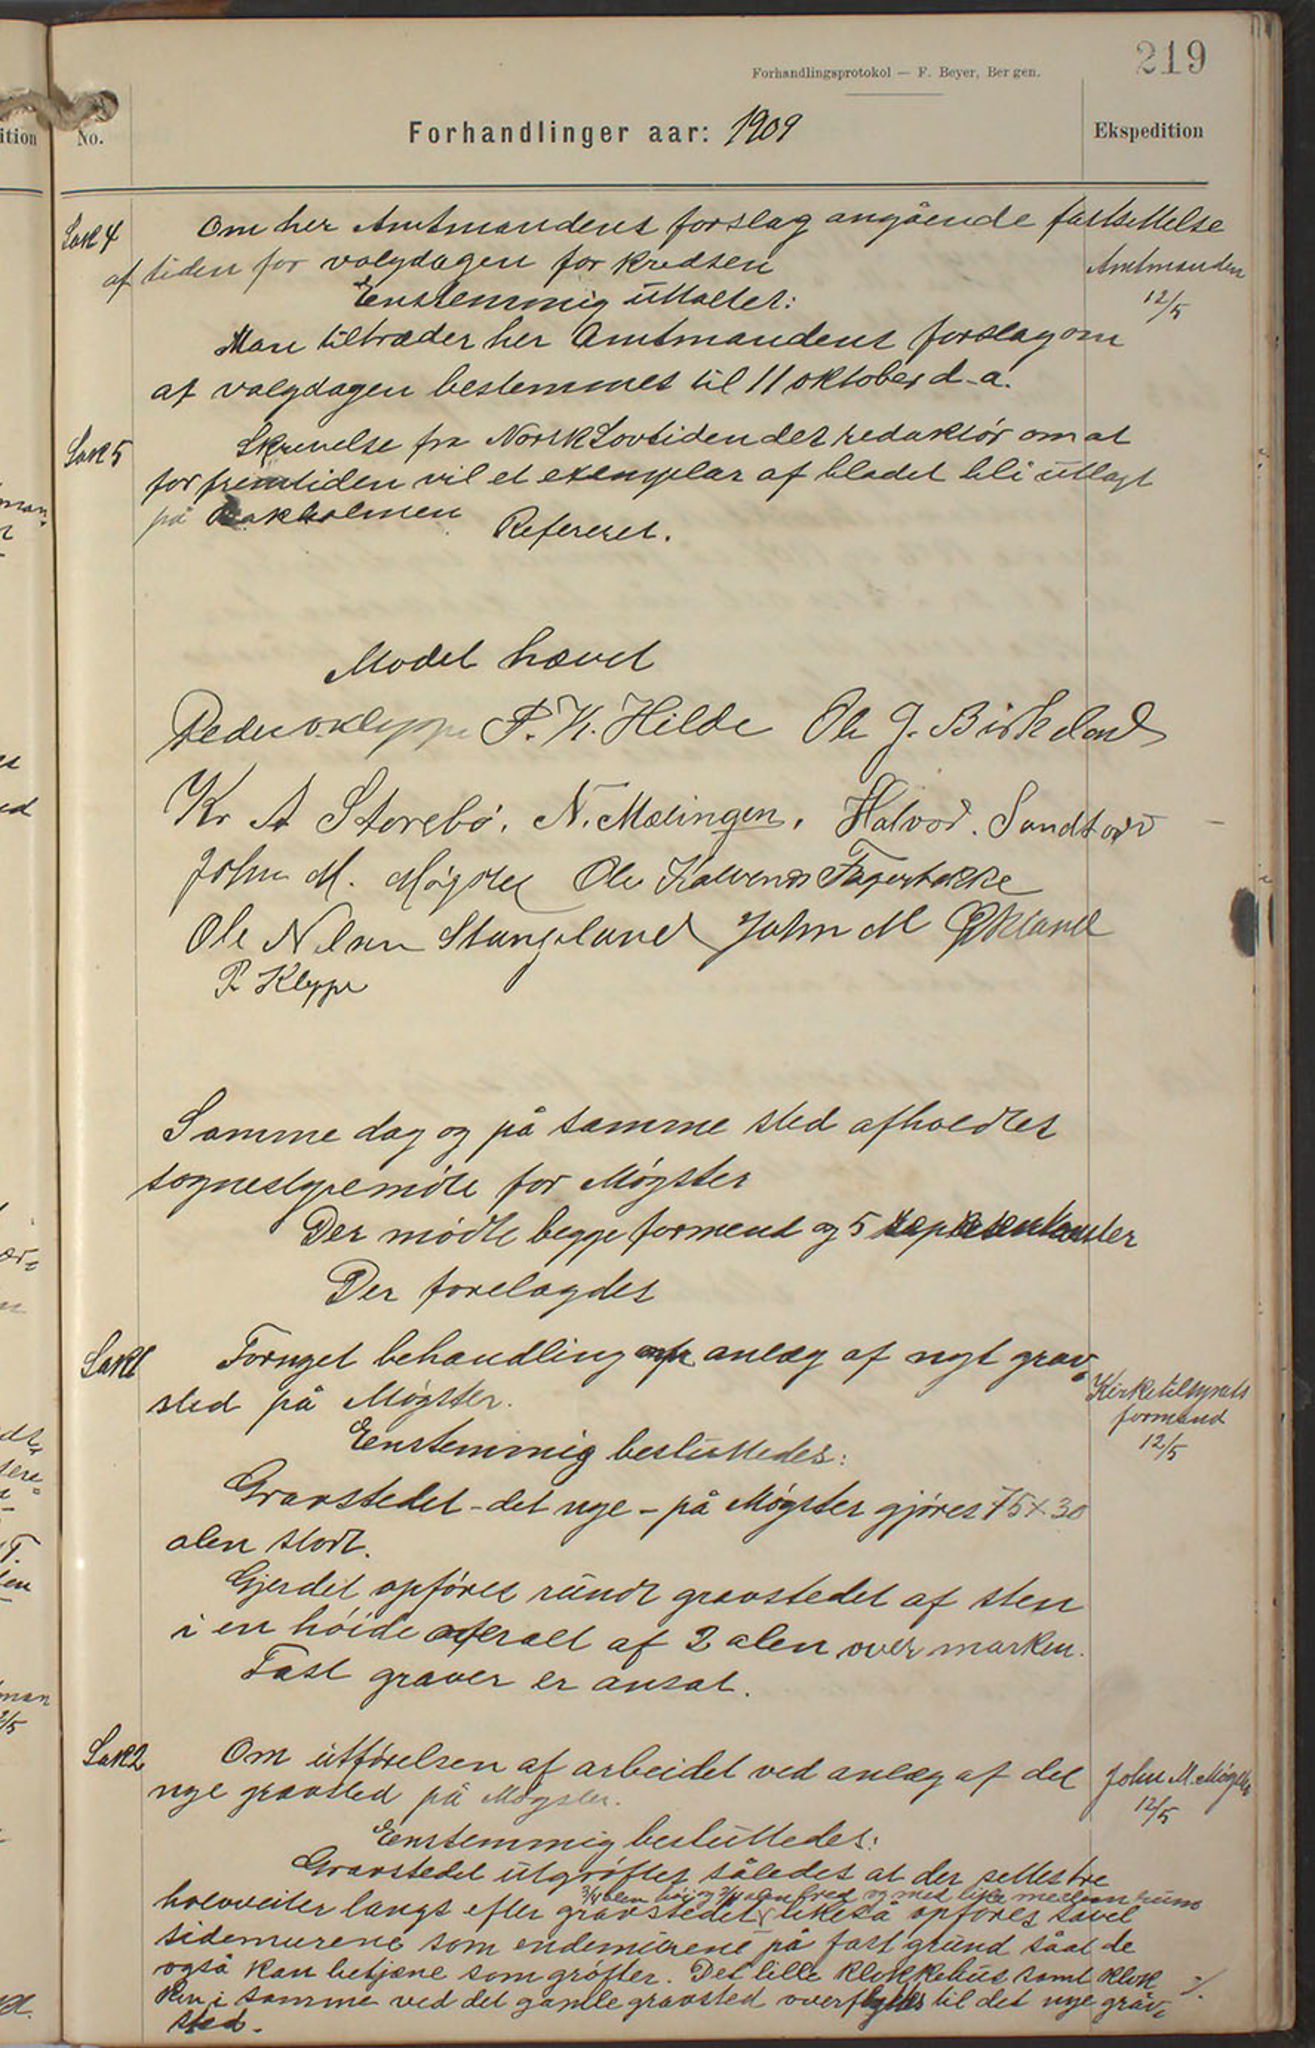 219
Forhandlingsprotokol — F. Beyer, Bergen.
No.
Forhandlinger aar: 1909
Ekspedition
Sak 4
Om her Amtmandens forslag angående fastsettelse
af tiden for valgdagen for kredsen
Amtmanden
12/5
Enstemmig uttaltes:
Man tiltræder her Amtmandens forslag om
at valgdagen bestemmes til 11 oktober d.a.
Sak 5
Skrivelse fra Norsk Lovtidendes redaktör om at
for fremtiden vil et exemplar af bladet bli utlagt
på Bakholmen
Refereret.
Mødet hævet
Peder O. Kleppe P. K. Hilde Ole J. Birkeland
Kr A Storebö. N. Mælingen. Halvor. Sandtorv
John M. Møgster Ole Kalvenes Fagerbakke
Ole Nilsen Stangeland John M Økland
P. Kleppe
Samme dag og på samme sted afholdtes
sognestyremöte for Møgster
Der mödte begge formend og 5 repræsentanter
Der forelagdes
Sak 1
Fornyet behandling om anlæg af nyt grav-
sted på Møgster.
Kirketilsynets
formand
12/5
Eenstemmig besluttedes:
Gravstedet - det nye - på Møgster gjöres 75 x 30
alen stort.
Gjerdet opföres rundt gravstedet af sten
i en höide overalt af 2 alen over marken.
Fast graver er ansat.
Sak 2
Om utförelsen af arbeidet ved anlæg af det
nye gravsted på Møgster.
John M. Møgster
12/5
Eenstemmig besluttedes:
Gravstedet utgröftes således at der settes tre
3/4 alen höi og 3/4 alen bred og med like mellemrum
holveiter langs efter gravstedet likeså opföres såvel
sidemurene som endemurene på fast grund såat de
også kan betjene som gröfter. Det lille klokkehus samt klok
ken i samme ved det gamle gravsted overflyttes til det nye grav-
sted.